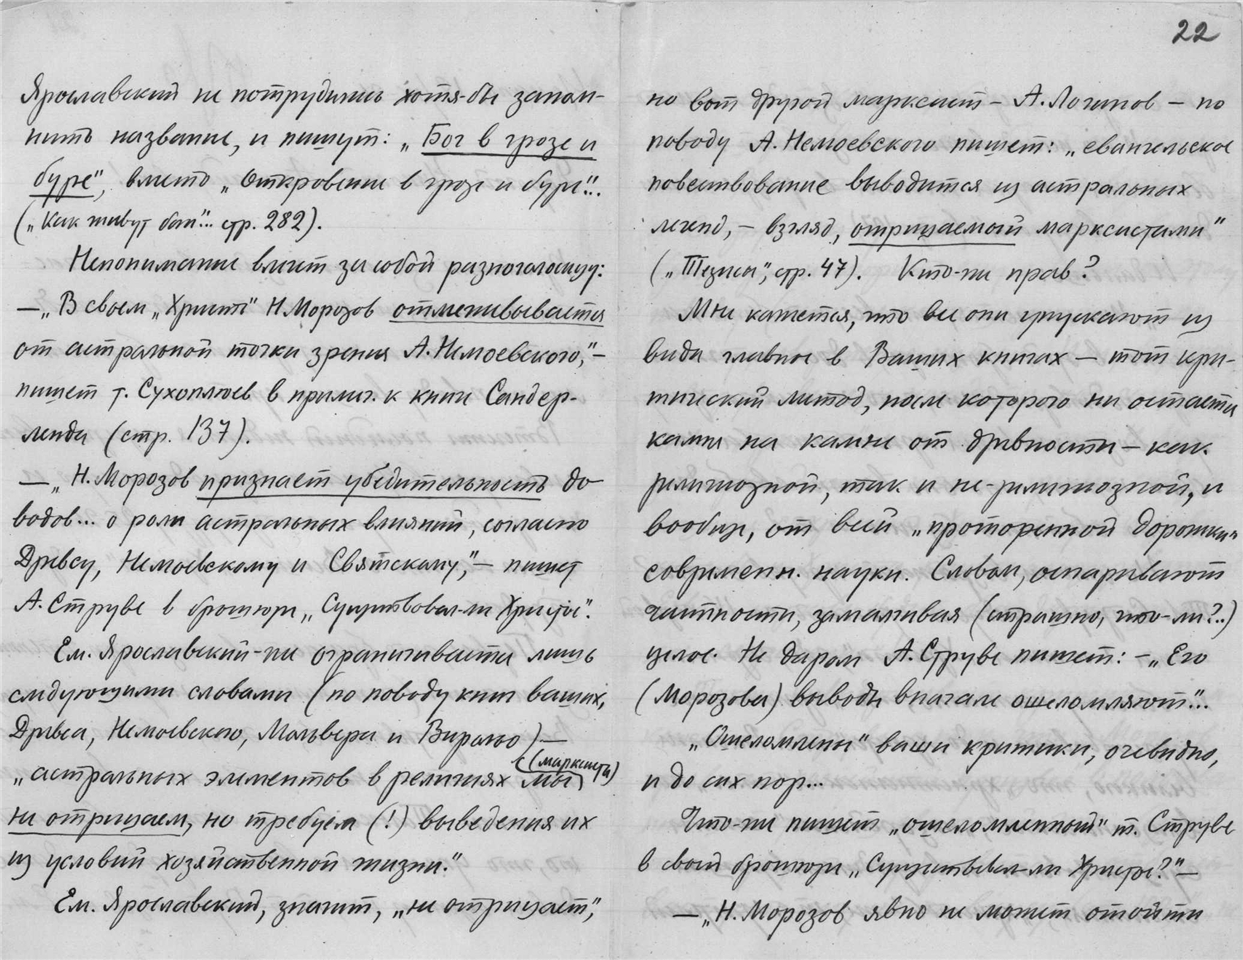 Ярославский не потрудились хотя-бы запом-
нить название, и пишут: „Бог в грозе и
буре", вместо „Откровение в грозе и буре"...
(„Как живут боги"... стр. 282).
Непонимание влечет за собой разноголосицу:
—„В своем „Христе" Н. Морозов отмежевывается
от астральной точки зрения А. Немоевского,"—
пишет т. Сухоплюев в примеч. к книге Сандер-
ленда (стр. 137).
—„Н. Морозов признает убедительность до-
водов... о роли астральных влияний, согласно
Древсу, Немоевскому и Святскому,"— пишет
А. Струве в брошюре „Существовал-ли Христос".
Ем. Ярославский-же ограничивается лишь
следующими словами (по поводу книг ваших,
Древса, Немоевского, Мальвера и Виролю)—
„астральных элементов в религиях мы (марксисты)
не отрицаем, но требуем (!) выведения их
из условий хозяйственной жизни."
Ем. Ярославский, значит, „не отрицает",
22
но вот другой марксист — А. Логинов — по
поводу А. Немоевского пишет: „евангельское
повествование выводится из астральных
легенд, — взгляд, отрицаемый марксистами"
(„Тезисы", стр. 47). Кто-же прав?
Мне кажется, что все они упускают из
вида главное в Ваших книгах — тот кри-
тический метод, после которого не остается
камня на камне от древности — как
религиозной, так и не-религиозной, и
вообще, от всей „проторенной дорожки"
современ. науки. Словом, оспаривают
частности, замалчивая (страшно, что-ли?..)
целое. Не даром А. Струве пишет: —„Его
(Морозова) выводы вначале ошеломляют"...
„Ошеломлены" ваши критики, очевидно,
и до сих пор...
Что-же пишет „ошеломленный" т. Струве
в своей брошюре „Существовал-ли Христос?"—
—„Н. Морозов явно не может отойти